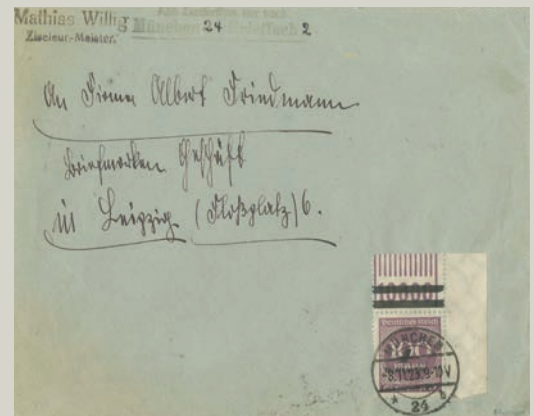 Mathias Willig
Ziseleur-Meister.
Alle Zuschriften nur nach
München 24 Brieffach 2
An Firma Albert Friedmann
Briefmarken Geschäft
in Leipzig (Floßplatz) 6.
Deutsches Reich
MÜNCHEN
-8.11.23.9-10V
* 24 b